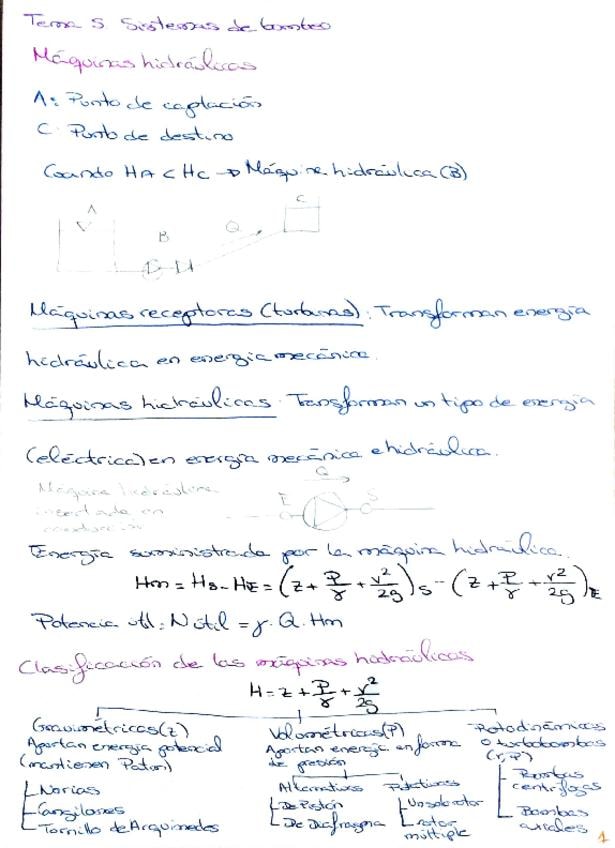 Tema 5. Sistemas de bombeo
Máquinas hidráulicas
A: Punto de captación
C: Punto de destino
Cuando HA < HC → Máquina hidráulica (B)
A
B
Q
C
Máquinas receptoras (turbinas): Transforman energía
hidráulica en energía mecánica.
Máquinas hidráulicas: Transforman un tipo de energía
(eléctrica) en energía mecánica e hidráulica.
Máquina hidráulica
insertada en
conducción
Q
E
S
Energía suministrada por la máquina hidráulica.
Hm = HS - HE = (z + P/γ + v²/2g)S - (z + P/γ + v²/2g)E
Potencia útil: Nútil = γ · Q · Hm
Clasificación de las máquinas hidráulicas
H = z + P/γ + v²/2g
Gravimétricas (z)
Aportan energía potencial
(mantienen Patm)
Norias
Cangilones
Tornillo de Arquímedes
Volumétricas (P)
Aportan energía en forma
de presión
Alternativas
De Pistón
De Diafragma
Rotativas
Un solo rotor
rotor
múltiple
Rotodinámicas
o turbobombas
(v, P)
Bombas
centrífugas
Bombas
axiales
1